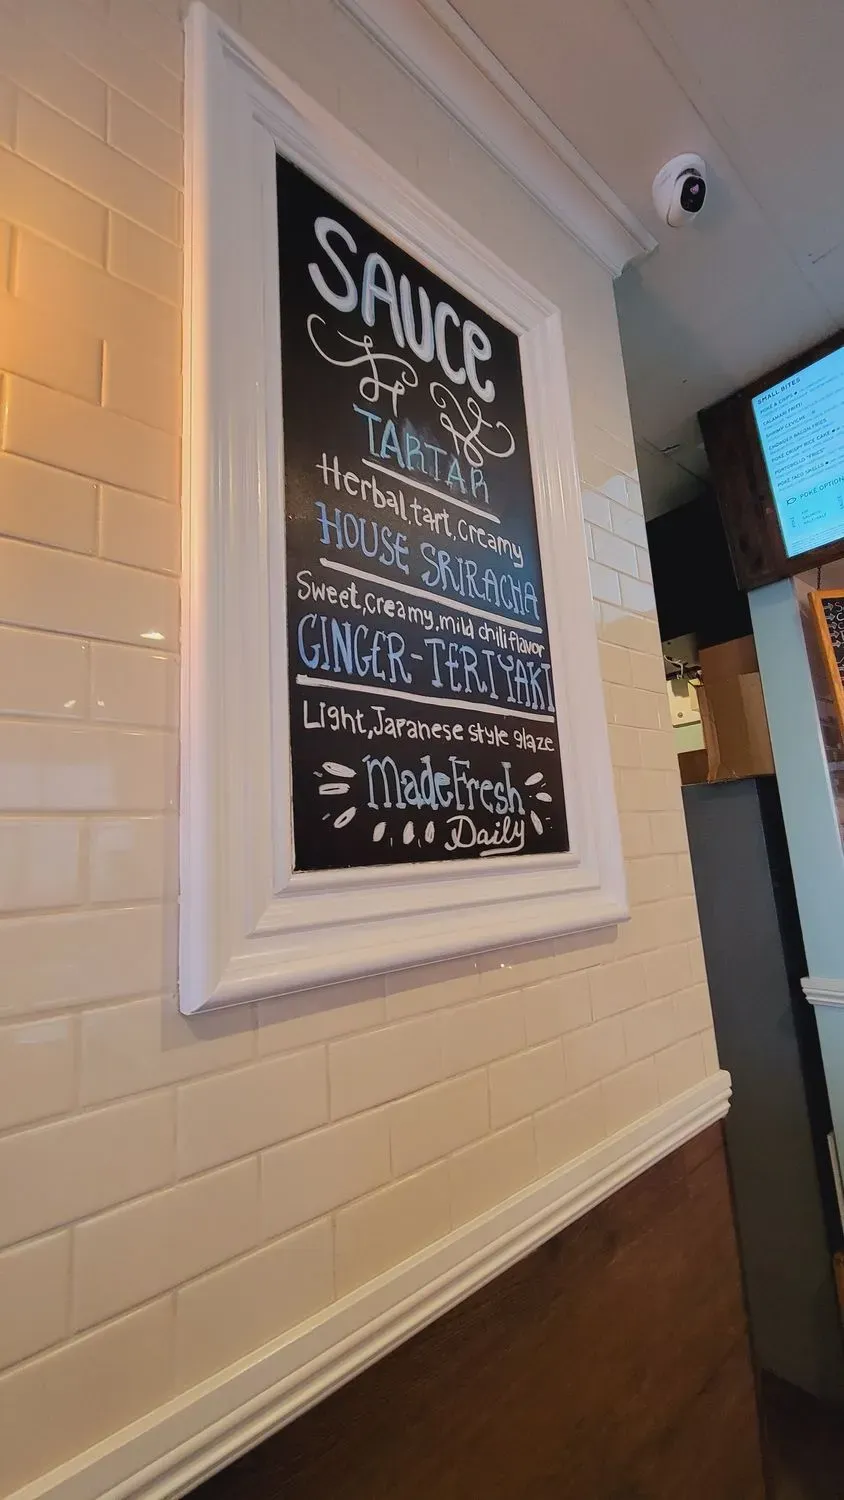 SAUCE
TARTAR
Herbal, tart, creamy
HOUSE SRIRACHA
Sweet, creamy, mild chili flavor
GINGER-TERIYAKI
Light, Japanese style glaze
Made Fresh
Daily
SMALL BITES
POKE & CHIPS
CALAMARI FRITTI
SHRIMP CEVICHE
CHOWDER BACON FRIES
POKE CRISPY RICE CAKE
PORTOBELLO "FRIES"
POKE TACO SHELLS
POKE OPTION